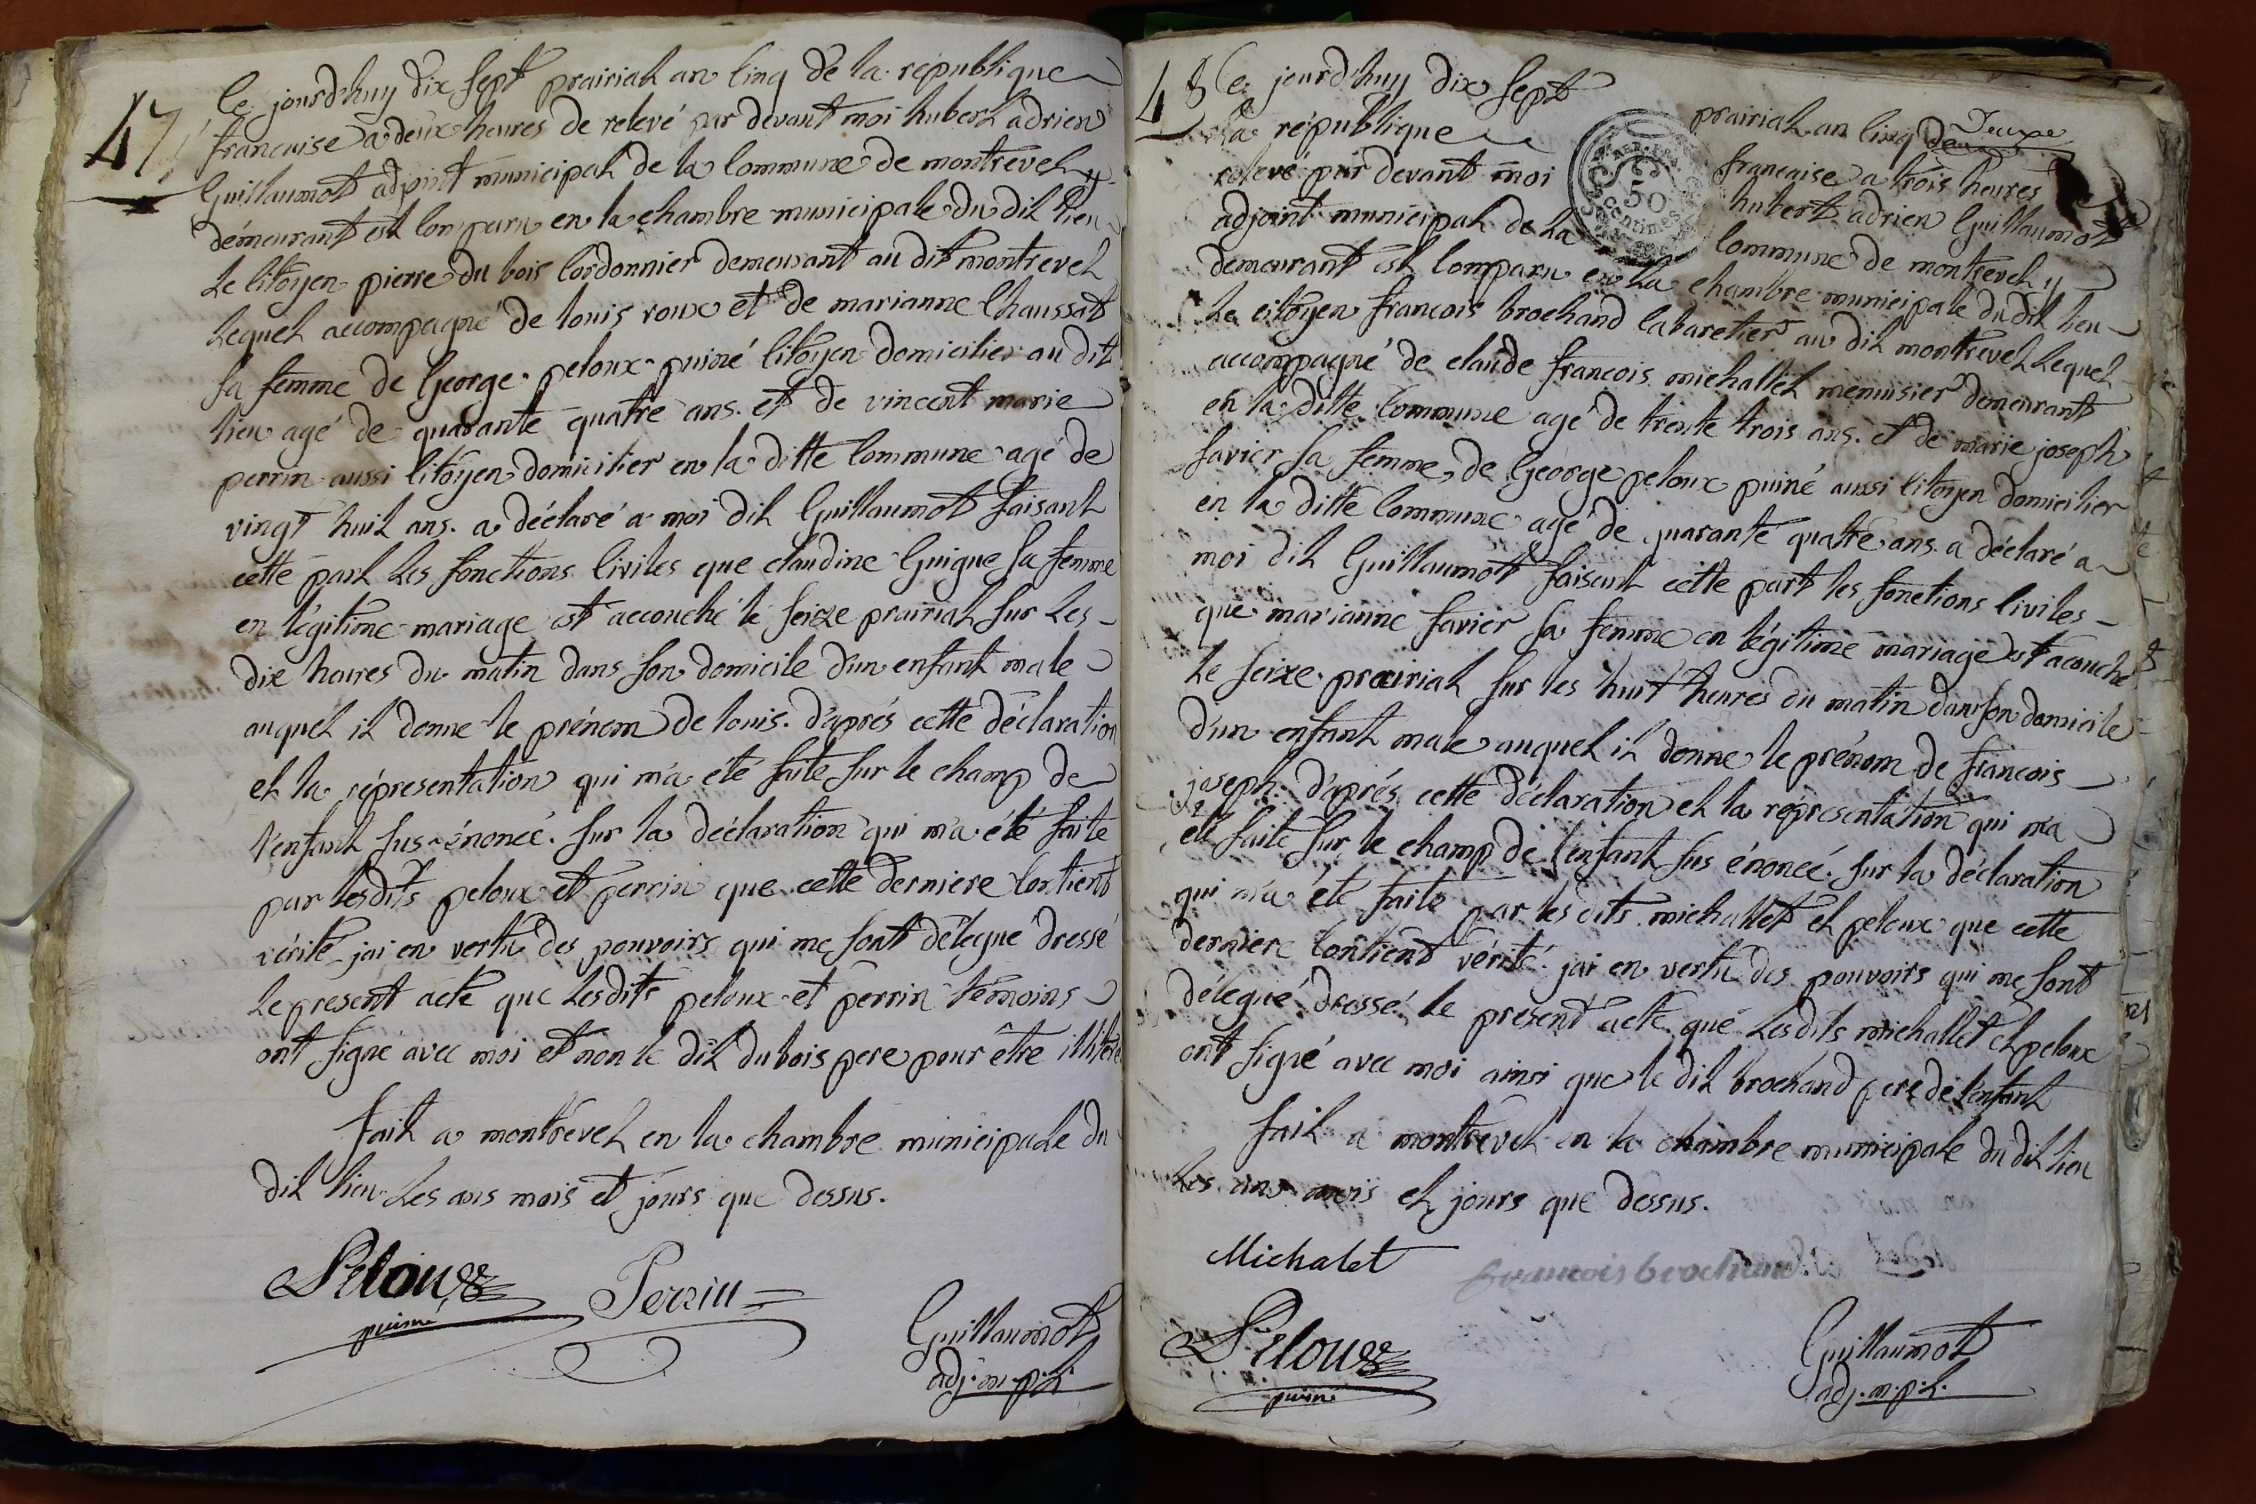 47
Ce jourd'huy dix sept prairial an cinq de la république
francaise a deux heures de relevé par devant moi hubert adrien
Guillaumot adjoint municipal de la commune de montrevel y
démeurant est comparu en la chambre municipale du dit lieu
le citoyen pierre du bois cordonnier demeurant au dit montrevel
lequel accompagné de louis roux et de marianne Chaussat
sa femme de George peloux puiné citoyen domicilier au dit
lieu agé de quarante quatre ans. et de vincent marie
perrin aussi citoyen domicilier en la ditte commune agé de
vingt huit ans. a déclaré a moi dit Guillaumot faisant
cette part les fonctions civiles que claudine Guigue sa femme
en légitime mariage est accouché le seize prairial sur les
dix heures du matin dans son domicile d'un enfant male
auquel il donne le prénom de louis. d'aprés cette déclaration
et la répresentation qui m'a été faite sur le champ de
l'enfant sus-énoncé. sur la déclaration qui m'a été faite
par lesdits peloux et perrin que cette derniere contient
vérité jai en vertu des pouvoirs qui me sont délegué dressé
le present acte que lesdits peloux et perrin témoins
ont signé avec moi et non le dit dubois pere pour être illiteré
fait a montrevel en la chambre municipale du
dit lieu les ans mois et jours que dessus.
Peloux
puiné
Perrin
Guillaumot
adj. m.p.l.
48
Ce jourd'huy dix sept prairial an cinq de
la république francaise a trois heures
relevé par devant moi hubert adrien Guillaumot
adjoint municipal de la commune de montrevel y
demeurant est comparu en la chambre municipale du dit lieu
le citoyen francois brochand cabaretier au dit montrevel lequel
accompagné de claude francois michallet menuisier demeurant
en la ditte commune agé de trente trois ans. et de marie joseph
favier sa femme, de George peloux puiné aussi citoyen domicilier
en la ditte commune agé de quarante quatre ans. a déclaré a
moi dit Guillaumot faisant cette part les fonctions civiles
que marianne favier sa femme en légitime mariage est acouché
le seize prairial sur les huit heures du matin dans son domicile
d'un enfant male auquel il donne le prénom de francois
joseph. d'aprés cette déclaration et la representation qui m'a
été faite sur le champ de l'enfant sus énoncé. sur la déclaration
qui m'a été faite par les dits michallet et peloux que cette
derniere contient vérité. jai en vertu des pouvoirs qui me sont
délegué dressé le present acte que lesdits michallet et peloux
ont signé avec moi ainsi que le dit brochand pere de l'enfant
fait a montrevel en la chambre municipale du dit lieu
les ans mois et jours que dessus.
Michalet
francois brochand
Peloux
puiné
Guillaumot
adj. m.p.l.
50
centimes